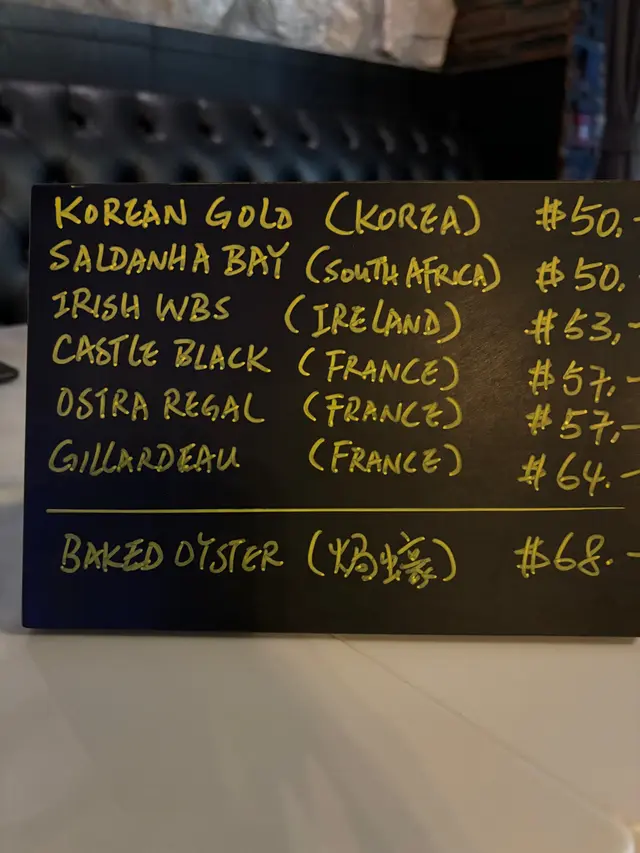 KOREAN GOLD (KOREA) $50.-
SALDANHA BAY (SOUTH AFRICA) $50.
IRISH WBS (IRELAND) $53,-
CASTLE BLACK (FRANCE) $57,-
OSTRA REGAL (FRANCE) $57,-
GILLARDEAU (FRANCE) $64.-
BAKED OYSTER (焗蠔) $68.-